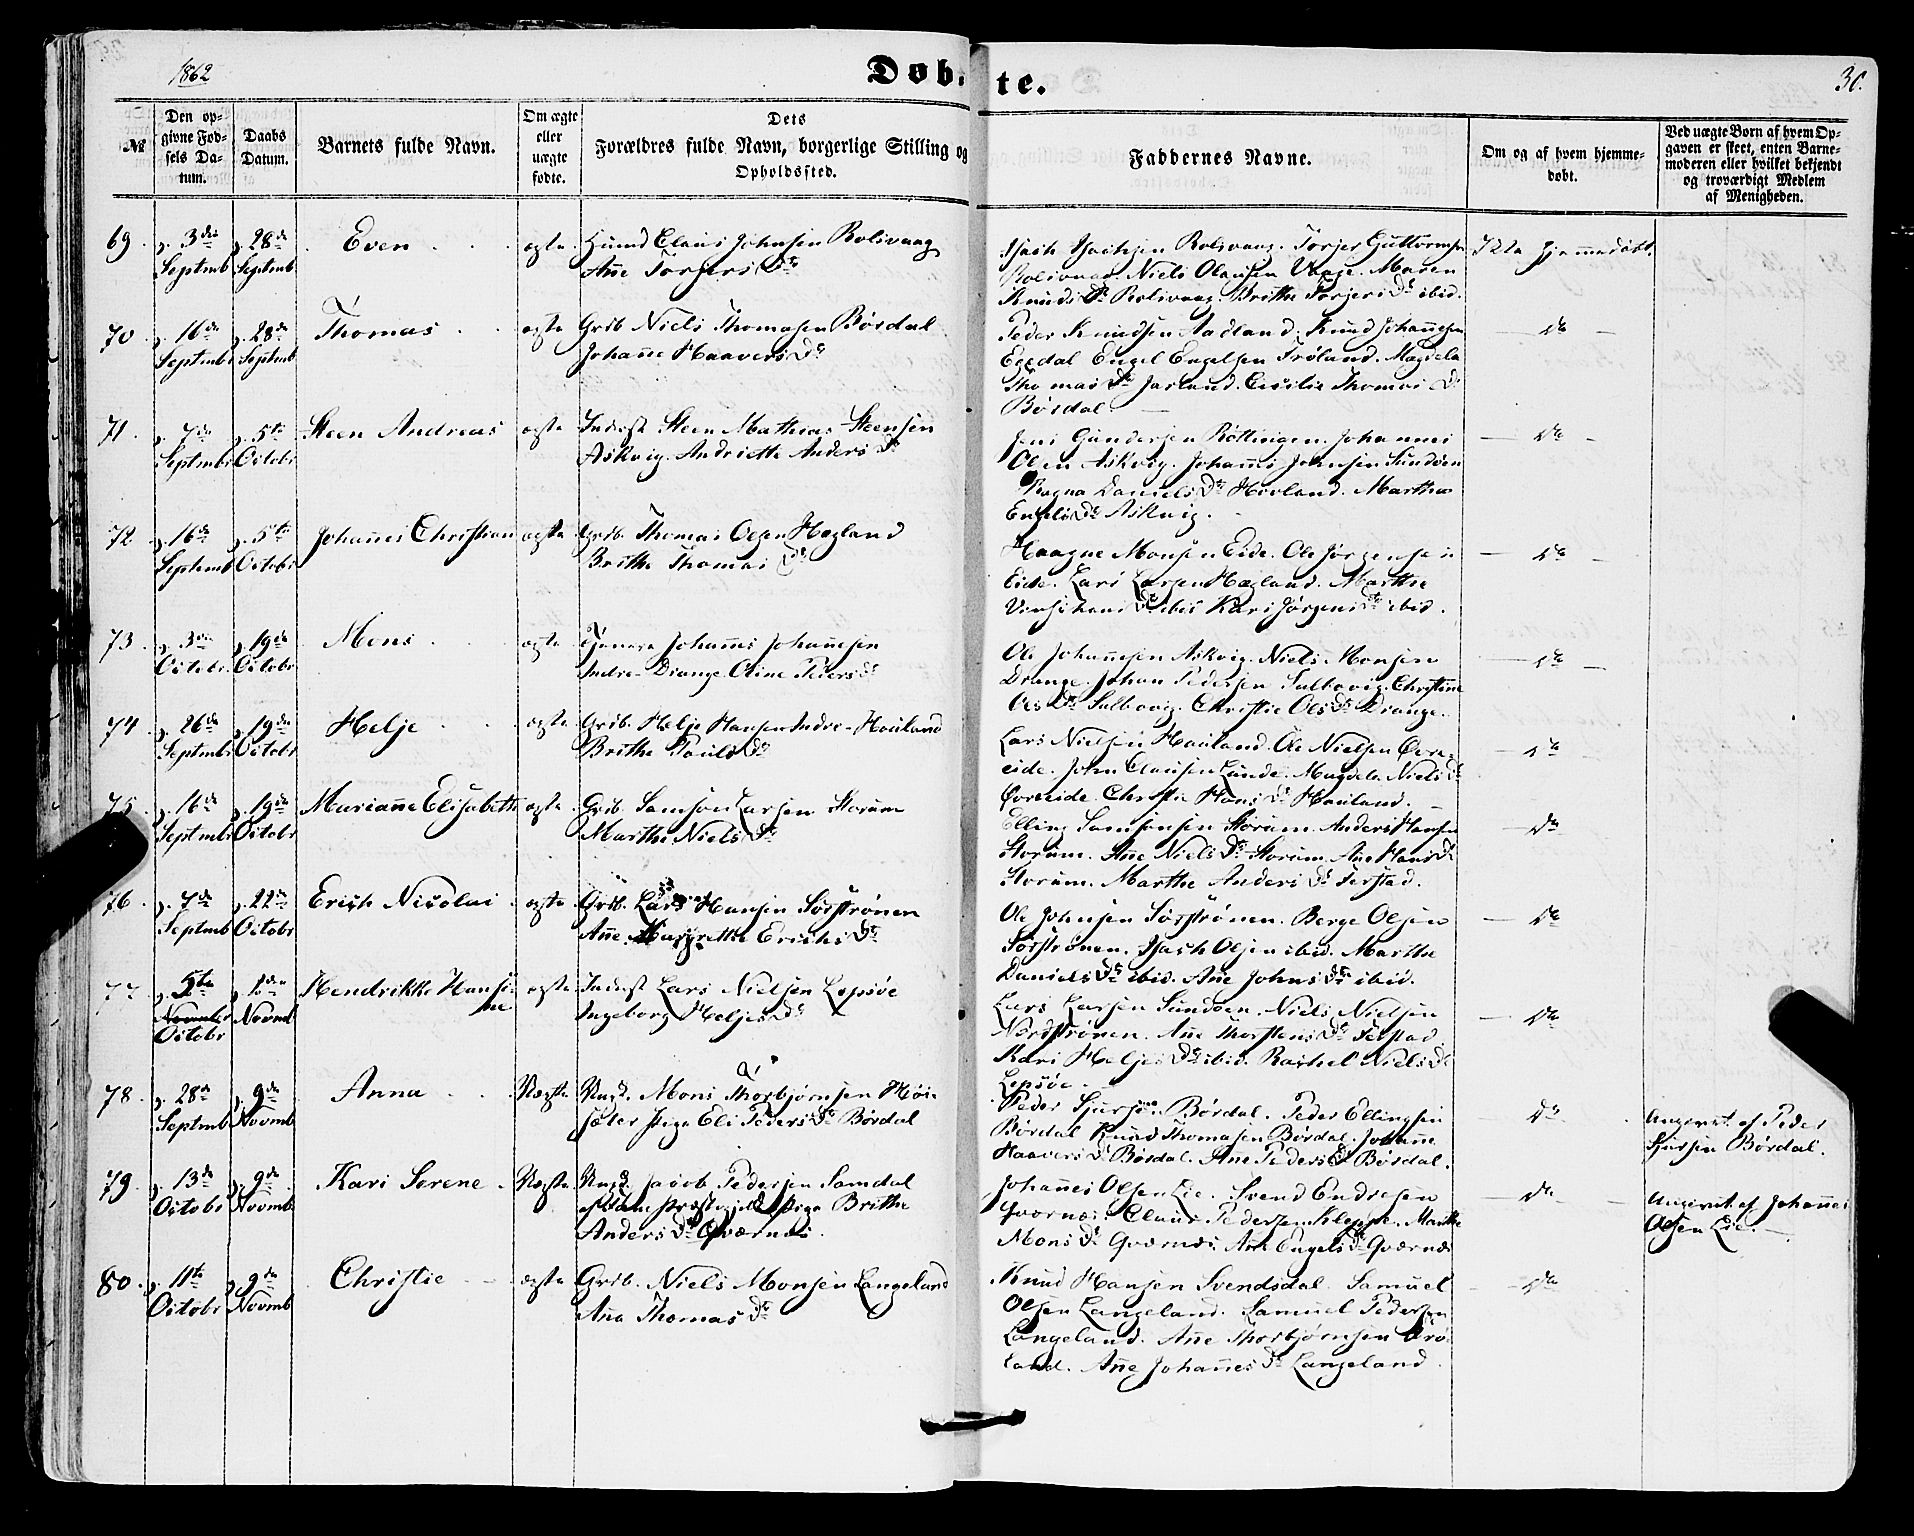 1862
Døbte.
30.
№
Den opgivne Fødsels Datum.
Daabs Datum.
Barnets fulde Navn.
Om ægte eller uægte fødte.
Dets Forældres fulde Navn, borgerlige Stilling og Opholdssted.
Faddernes Navne.
Om og af hvem hjemmedøbt.
Ved uægte Børn af hvem Opgaven er skeet, enten Barnemoderen eller hvilket bekjendt og troværdigt Medlem af Menigheden.
69. d. 3die Septmb d. 28de Septmb Even ægte
Huusmd Claus Johnsen Rolsvaag
Ane Torgers Dr
Isach Isachsen Rolsvaag. Torger Guttormsen
Rolsvaag. Niels Olausen Vaage. Maren
Knuds Dr Rolsvaag. Brithe Torgers Dr ibid.
Ikke hjemmedøbt.
70. d. 16de Septmb d. 28de Septmb Thomas ægte
Grdb. Niels Thomasen Børdal
Johanne Haavers Dr
Peder Knudsen Aadland. Knud Johannesen
Eegdal Engel Engelsen Frøland. Magdela
Thomas Dr Jarland. Cecilie Thomas Dr
Børdal.
Do
71. d. 7de Septmbr d. 5te Octobr Steen Andreas ægte
Inderst Steen Mathias Steensen
Askvig. Andriette Anders Dr
Jens Gundersen Røttingen. Johannes
Olsen Askvig. Johannes Johnsen Sundøen
Ragna Daniels Dr Hovland. Marthe
Engels Dr Askvig.
Do
72. d. 16de Septmb d. 5te Octobr Johannes Christian ægte
Grdb. Thomas Olsen Hegland
Brithe Thomas Dr
Haagne Monsen Eide. Ole Jørgensen
Eide. Lars Larsen Hegland. Marthe
Dr ibid Kari Jørgens Dr ibid.
Do
73. d. 3die Octobr. d. 19de Octobr Mons ægte
Tjenere Johannes Johannesen
Indre-Drange. Oline Peders Dr
Ole Johannesen Askvig. Niels Monsen
Drange. Johan Pedersen Sulbovig. Christine
Ols Dr Sulbovig. Christie Ols Dr Drange.
Do
74. d. 26de Septmbr d. 19de Octobr Helje ægte
Grdb. Helje Hansen Indre-Hauland
Brithe Pauls Dr
Lars Nielsen Hauland. Ole Nielsen Øvre-
eide. John Clausen Lunde. Magdela Niels Dr
Øvreeide. Christie Hans Dr Hauland.
Do
75. d. 16de Septmbr d. 19de Octobr Mariane Elisabeth ægte
Grdb. Samson Larsen Storum
Marthe Niels Dr
Elling Samsonsen Storum. Anders Hansen
Storum. Ane Niels Dr Storum. Ane Hans Dr
Storum. Marthe Anders Dr Ferstad.
Do
76. d. 7de Septmb d. 22de Octobr Erich Nicolai ægte
Grdb. Lars Hansen Sørstrønen
Ane Margrethe Erichs Dr
Ole Johnsen Sørstrønen. Berge Olsen
Sørstrønen. Isach Olsen ibid. Marthe
Daniels Dr ibid. Ane Johns Dr ibid.
Do
77. d. 5te Novmbr Octobr d. 2den Novmb Hendrikke Hansine ægte
Inderst Lars Nielsen Lepsøe
Ingeborg Heljes Dr
Lars Larsen Sundøen. Niels Nielsen
Nordstrønen. Ane Thorstens Dr Ferstad
Kari Heljes Dr ibid. Rachel Niels Dr
Lepsøe.
Do
78. d. 28de Septmb d. 9de Novmb Anna Uægte
Ungk. Mons Thorbjørnsen Høi-
sæter Pige Eli Peders Dr Børdal
Peder Sjursen Børdal. Peder Ellingsen
Børdal Knud Thomasen Børdal. Johanne
Haavers Dr Børdal. Ane Peders Dr Børdal.
Do
Angivet af Peder
Sjursen Børdal.
79. d. 13de Octobr d. 9de Novmb Kari Serene Uægte
Ungk. Jacob Pedersen Samdal
af Præstegield Pige Brithe
Anders Dr Qværnes.
Johannes Olsen Lie. Svend Endresen
Qværnes. Claus Pedersen Kleppe. Marthe
Mons Dr Qværnes. Ane Engels Dr Qværnes
Do
Angivet af Johannes
Olsen Lie.
80. d. 11te Octobr d. 9de Novmb Christie ægte
Grdb. Niels Monsen Langeland
Ana Thomas Dr
Knud Hansen Svendsdal. Samuel
Olsen Langeland. Samuel Pedersen
Langeland. Ane Thorbjørnsen Frø-
land. Ane Johannes Dr Langeland.
Do